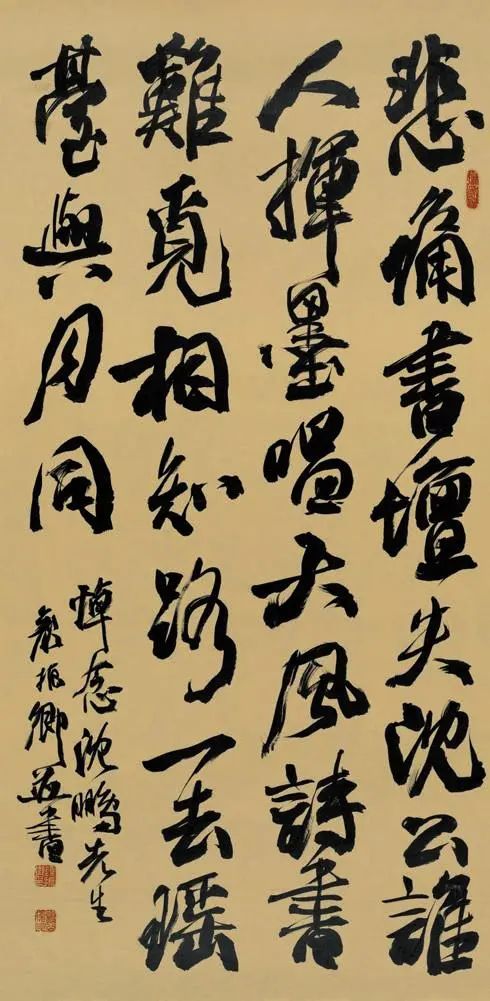 悲痛書壇失沈公誰
人揮墨唱大風詩書
難覓相知路一去瑤
臺與月同
悼念沈鵬先生
振卿並書